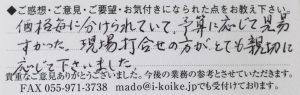 ◆ご感想・ご意見・ご要望・お気付きになられた点をお教え下さい。
価格毎に分けられていて、予算に応じて見易
すかった。現場打合せの方がとても親切に
応じて下さいました。
貴重なご意見ありがとうございました。今後の業務の参考とさせていただきます。
FAX 055-971-3738 mado@i-koike.jpでも受付ております。